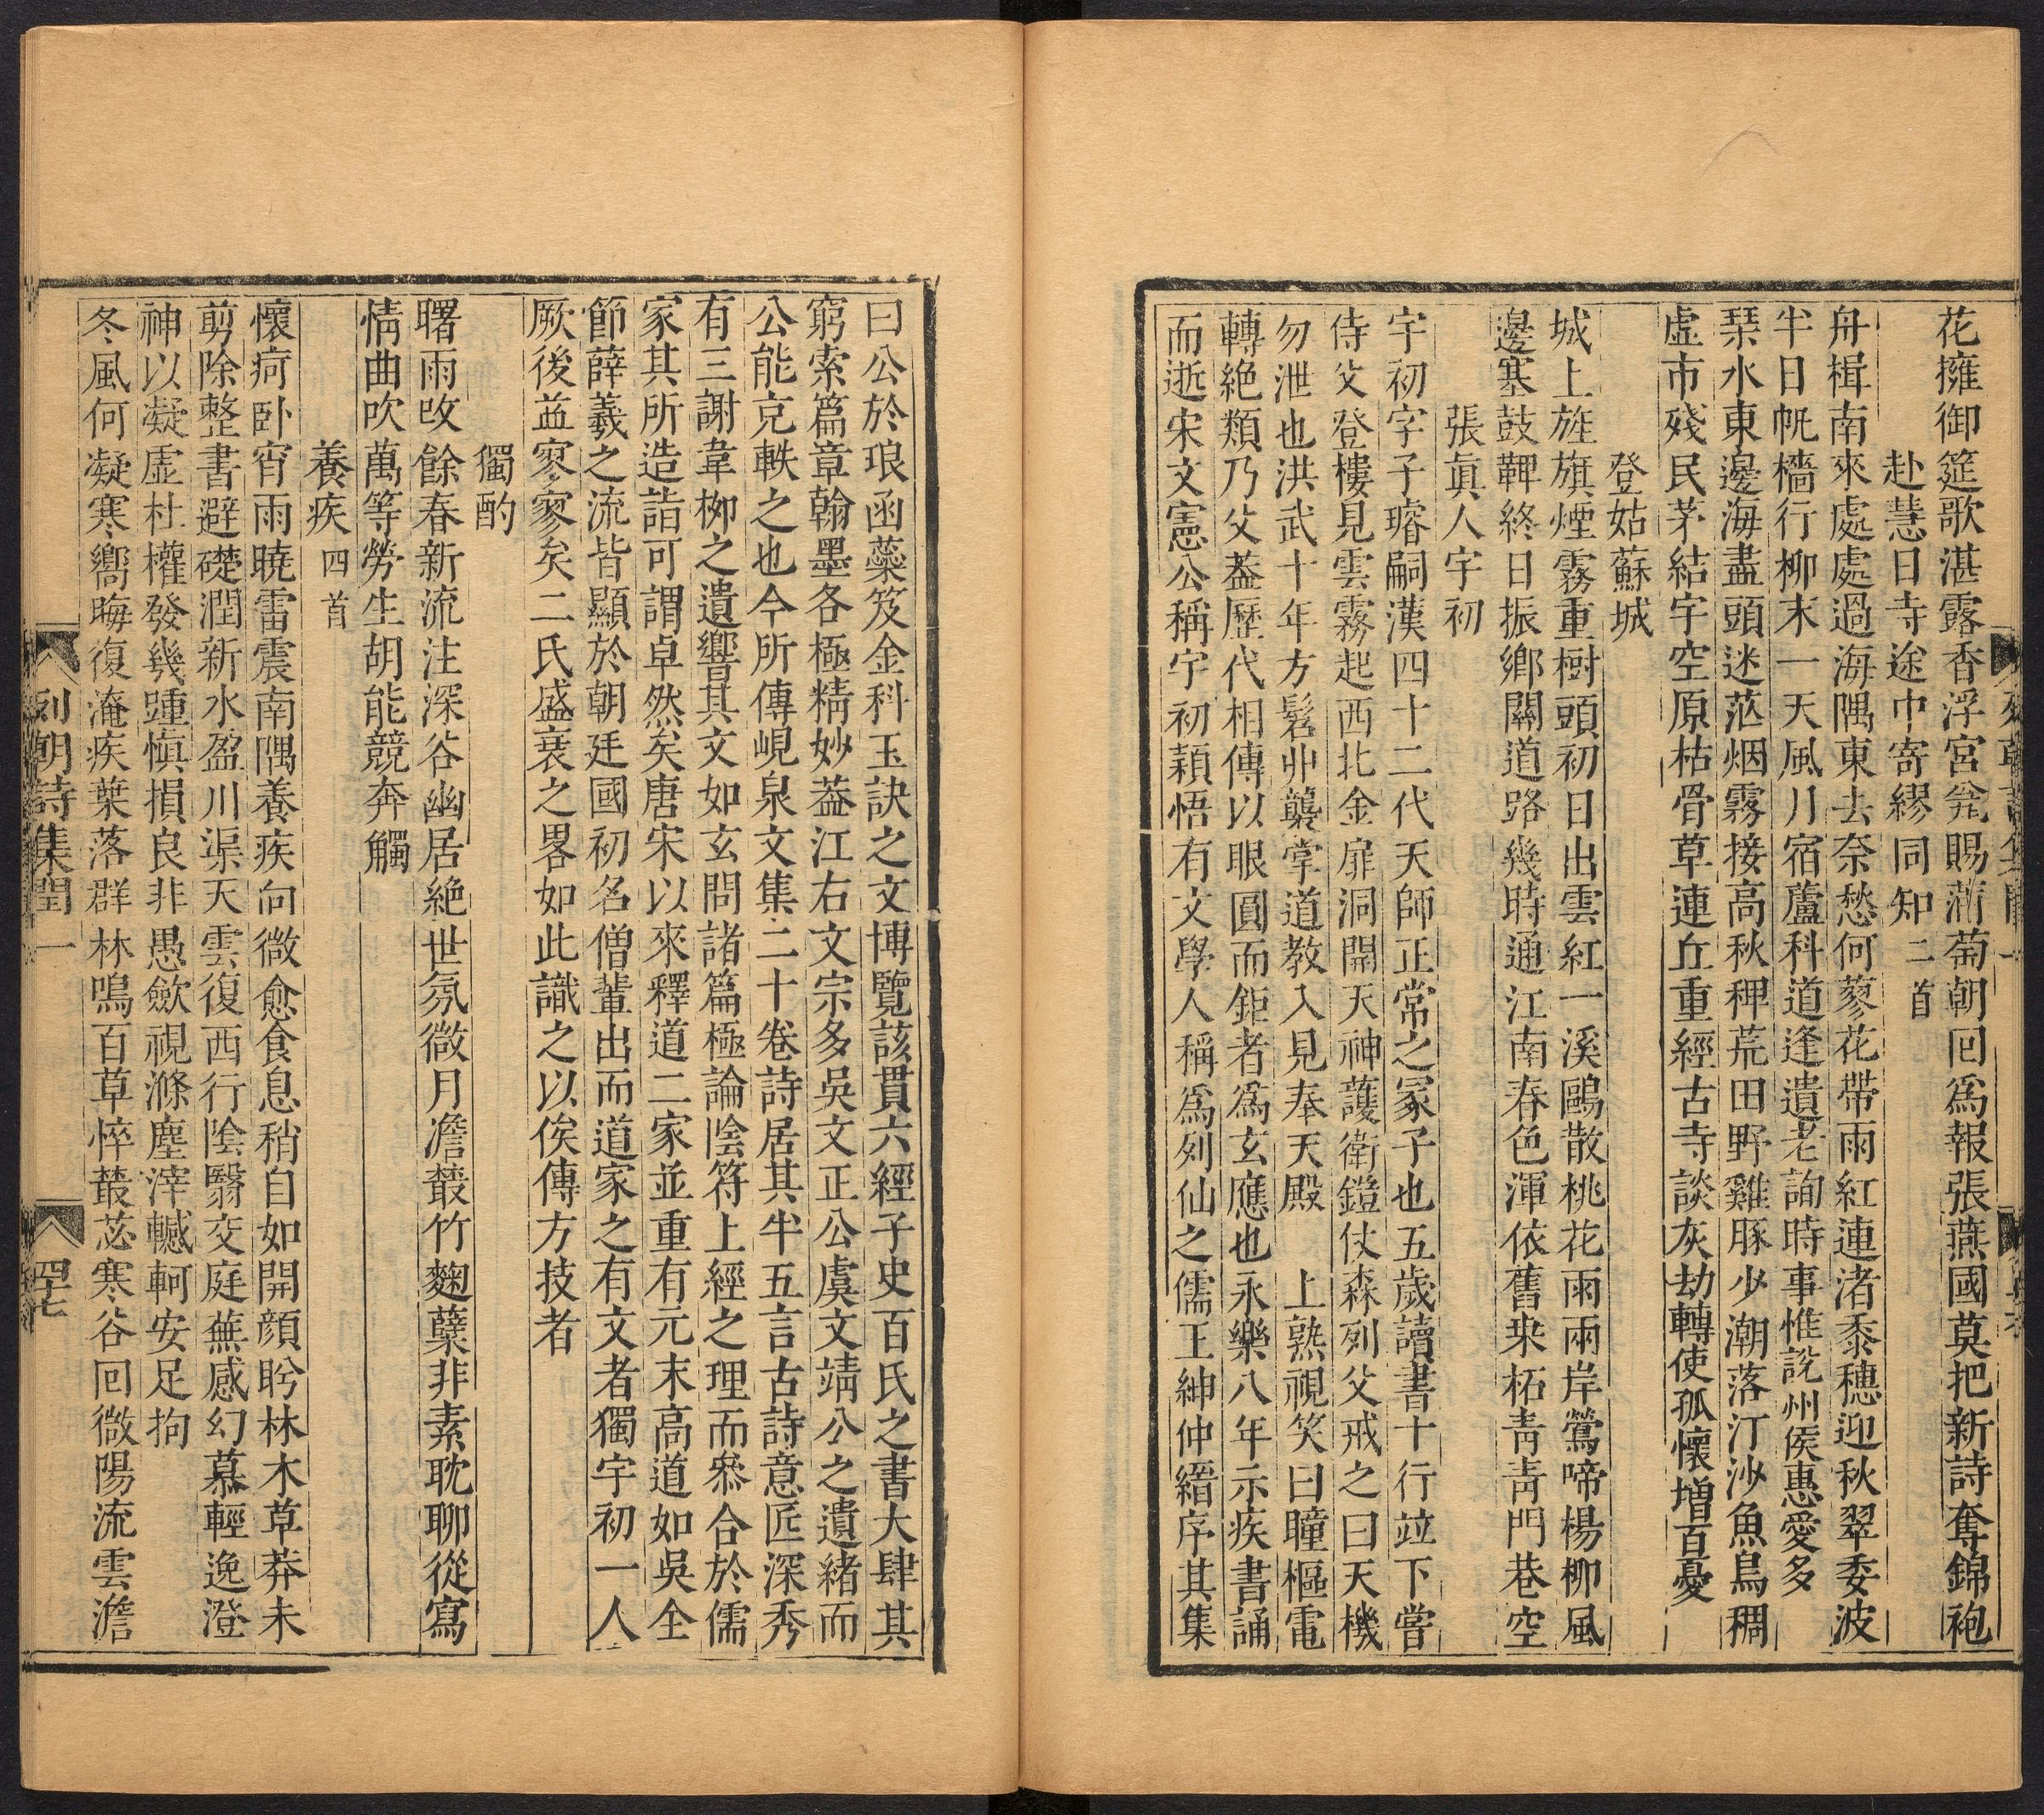 花擁御筵歌湛露香浮宮瓮賜蒲萄朝囘爲報張燕國莫把新詩奪錦袍
赴慧日寺途中寄繆同知二首
舟楫南來處處過海隅東去奈愁何蓼花帶雨紅連渚黍穗迎秋翠委波
半日帆檣行柳末一天風月宿蘆科道逢遺老詢時事惟說州侯惠愛多
琹水東邊海盡頭迷茫烟霧接高秋稗荒田野雞豚少潮落汀沙魚鳥稠
虛市殘民茅結宇空原枯骨草連丘重經古寺談灰劫轉使孤懷增百憂
登姑蘇城
城上旌旗煙霧重樹頭初日出雲紅一溪鷗散桃花雨兩岸鶯啼楊柳風
邊塞鼓鞞終日振鄉關道路幾時通江南春色渾依舊桒柘青青門巷空
張眞人宇初
宇初字子璿嗣漢四十二代天師正常之冢子也五歲讀書十行竝下嘗
侍父登樓見雲霧起西北金扉洞開天神護衛鎧仗森列父戒之曰天機
勿泄也洪武十年方髫丱襲掌道教入見奉天殿 上熟視笑曰瞳樞電
轉絕類乃父葢歷代相傳以眼圓而鉅者爲玄應也永樂八年示疾書誦
而逝宋文憲公稱宇初穎悟有文學人稱爲列仙之儒王紳仲縉序其集
曰公於琅函蘂笈金科玉訣之文博覽該貫六經子史百氏之書大肆其
窮索篇章翰墨各極精妙葢江右文宗多吳文正公虞文靖公之遺緒而
公能克軼之也今所傳峴泉文集二十卷詩居其半五言古詩意匠深秀
有三謝韋柳之遺響其文如玄問諸篇極論陰符上經之理而叅合於儒
家其所造詣可謂卓然矣唐宋以來釋道二家並重有元末高道如吳全
節薛羲之流皆顯於朝廷國初名僧輩出而道家之有文者獨宇初一人
厥後益寥寥矣二氏盛衰之畧如此識之以俟傳方技者
獨酌
曙雨改餘春新流注深谷幽居絕世氛微月澹叢竹麴蘖非素耽聊從寫
情曲吹萬等勞生胡能競奔觸
養疾四首
懷疴卧宵雨曉雷震南隅養疾向微愈食息稍自如開顏眄林木草莽未
剪除整書避礎潤新水盈川渠天雲復西行陰翳交庭蕪感幻慕輕逸澄
神以凝虛杜權發幾踵愼損良非愚歛視滌塵滓轗軻安足拘
冬風何凝寒嚮晦復淹疾葉落群林鳴百草悴叢苾寒谷囘微陽流雲澹
列朝詩集閏一
四七